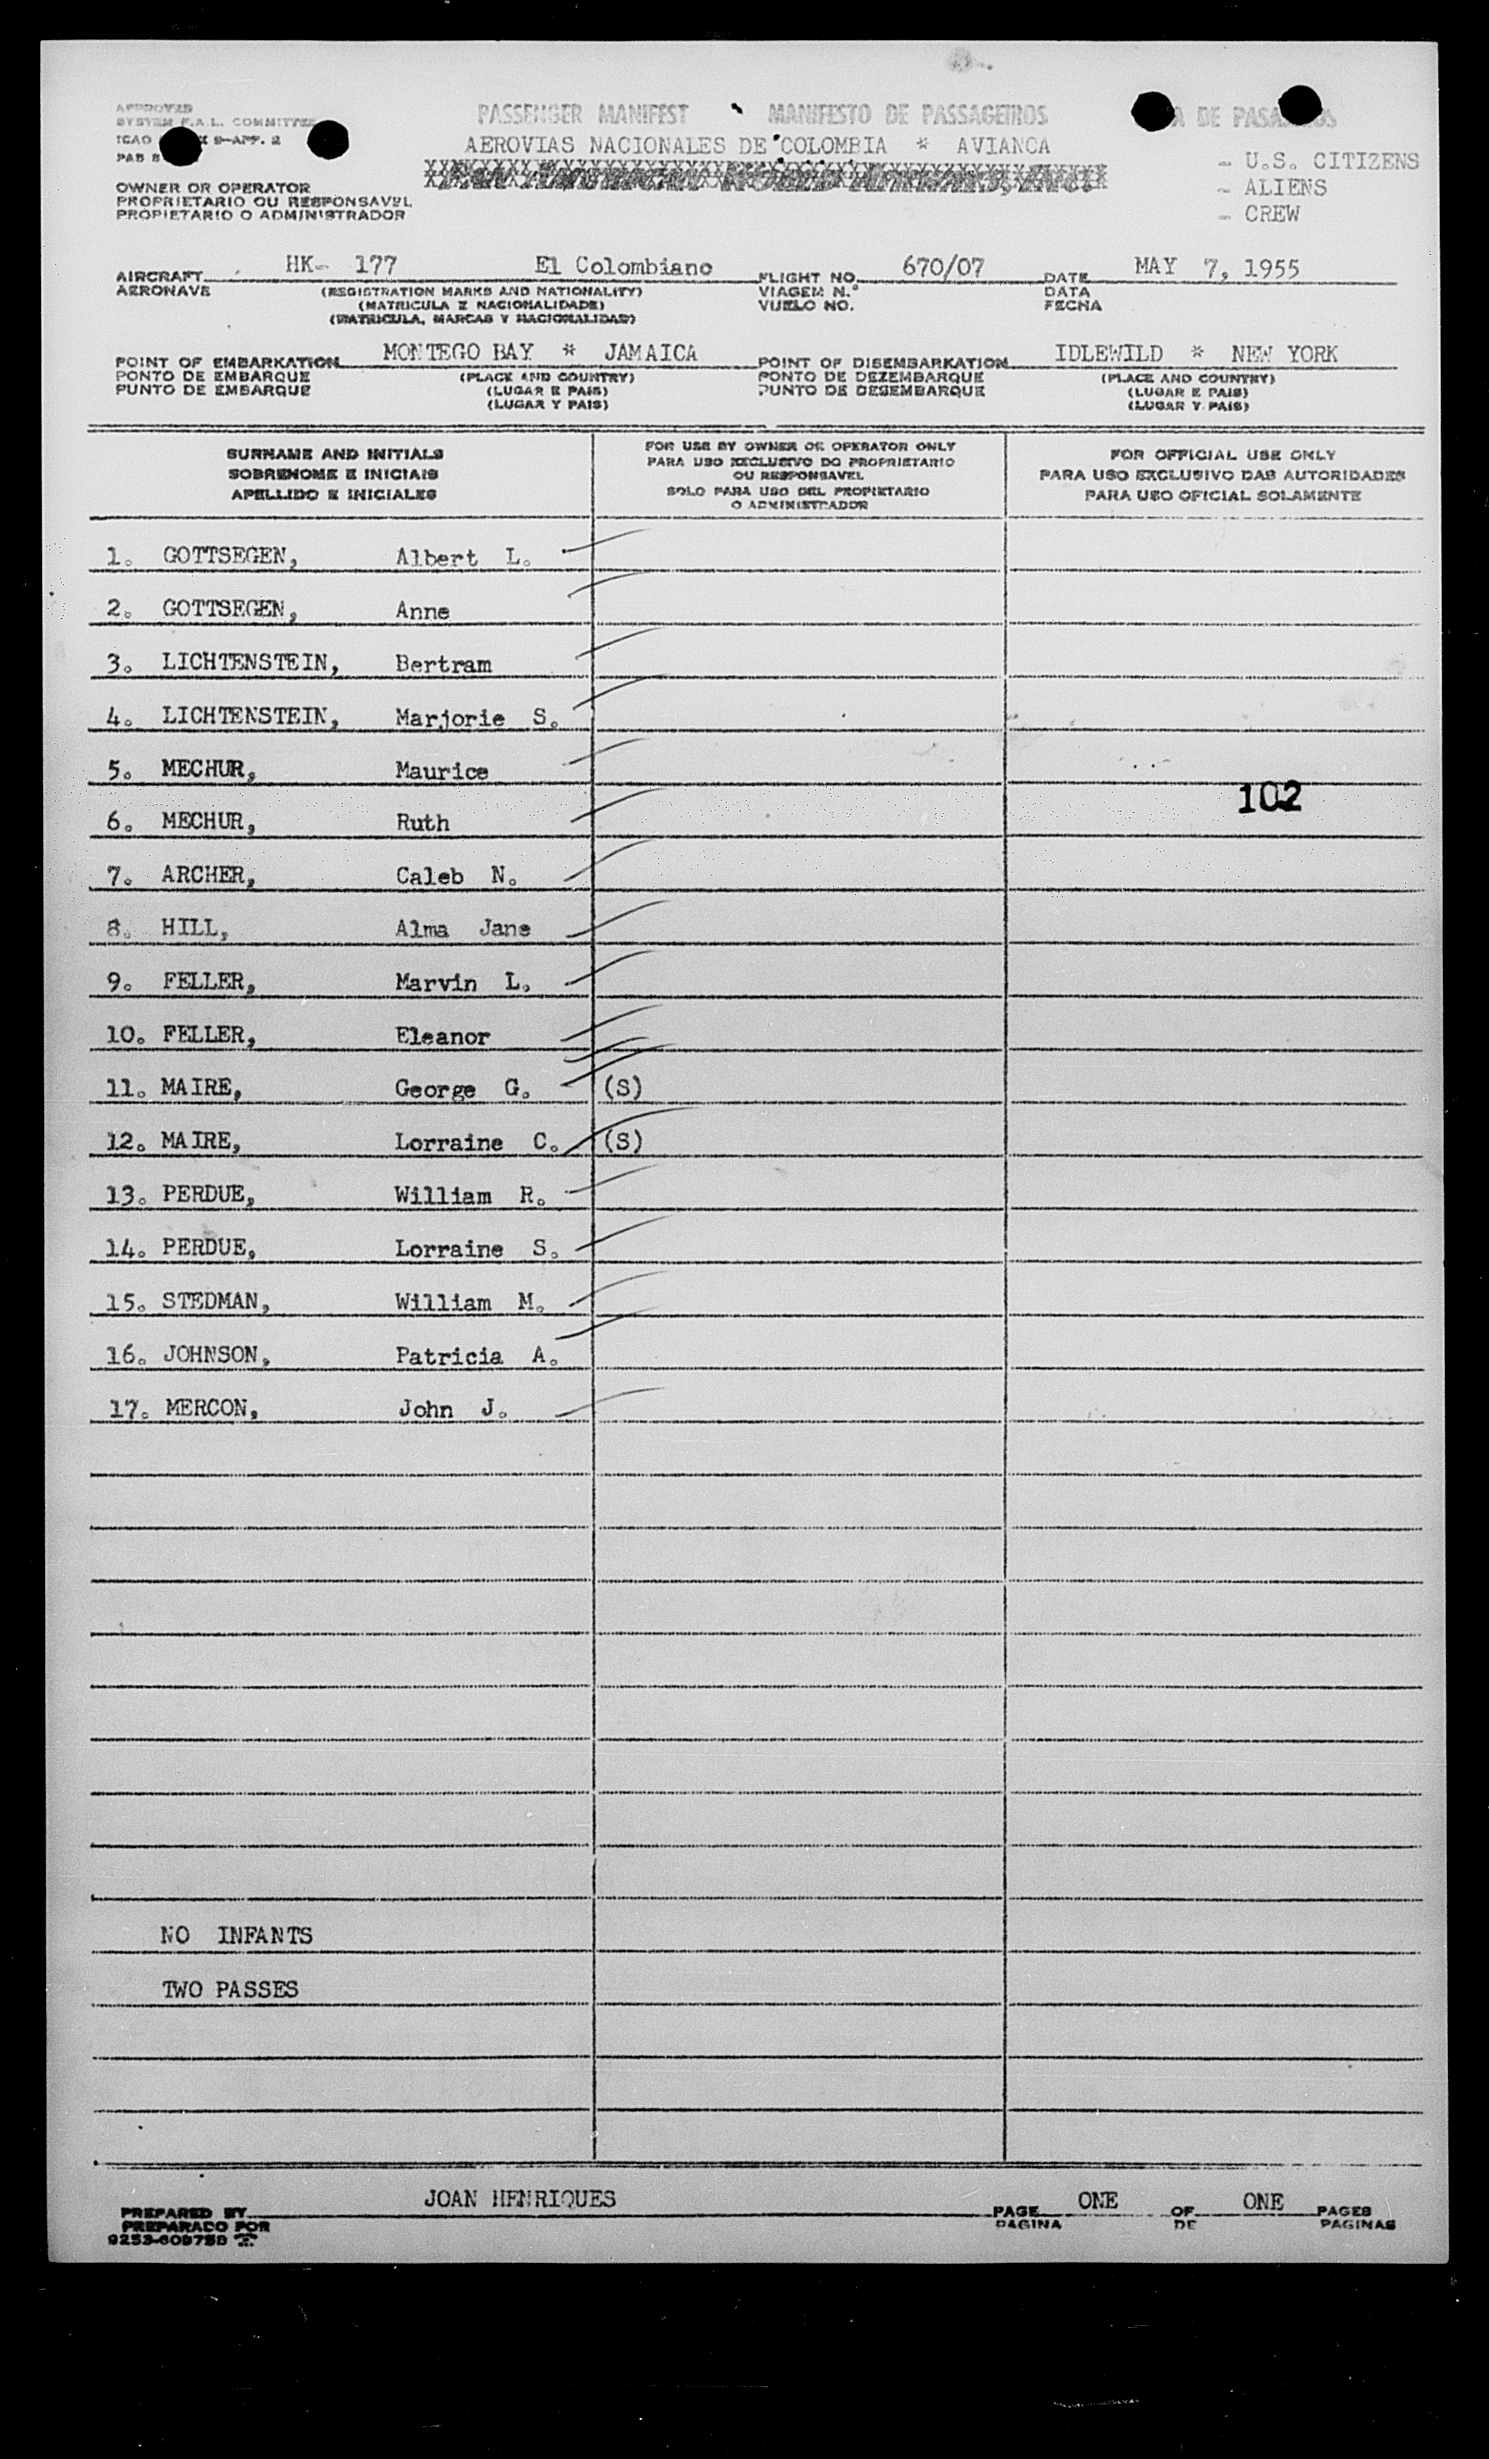 APPROVED
SYSTEM F.A.L. COMMITTEE
ICAO X 9-APP. 2
PAB
PASSENGER MANIFEST MANIFESTO DE PASSAGEIROS A DE PASAJEROS
AEROVIAS NACIONALES DE COLOMBIA * AVIANCA
PAN AMERICAN WORLD AIRWAYS, INC.
- U.S. CITIZENS
- ALIENS
- CREW
OWNER OR OPERATOR
PROPRIETARIO OU RESPONSAVEL
PROPIETARIO O ADMINISTRADOR
AIRCRAFT HK- 177 El Colombiano FLIGHT NO. 670/07 DATE MAY 7, 1955
AERONAVE (REGISTRATION MARKS AND NATIONALITY) VIAGEM N.º DATA
(MATRICULA E NACIONALIDADE) VUELO NO. FECHA
(MATRICULA, MARCAS Y NACIONALIDAD)
POINT OF EMBARKATION MONTEGO BAY * JAMAICA POINT OF DISEMBARKATION IDLEWILD * NEW YORK
PONTO DE EMBARQUE (PLACE AND COUNTRY) PONTO DE DEZEMBARQUE (PLACE AND COUNTRY)
PUNTO DE EMBARQUE (LUGAR E PAIS) PUNTO DE DESEMBARQUE (LUGAR E PAIS)
(LUGAR Y PAIS) (LUGAR Y PAIS)
SURNAME AND INITIALS
SOBRENOME E INICIAIS
APELLIDO E INICIALES
FOR USE BY OWNER OR OPERATOR ONLY
PARA USO EXCLUSIVO DO PROPRIETARIO
OU RESPONSAVEL
SOLO PARA USO DEL PROPIETARIO
O ADMINISTRADOR
FOR OFFICIAL USE ONLY
PARA USO EXCLUSIVO DAS AUTORIDADES
PARA USO OFICIAL SOLAMENTE
1. GOTTSEGEN, Albert L.
2. GOTTSEGEN, Anne
3. LICHTENSTEIN, Bertram
4. LICHTENSTEIN, Marjorie S.
5. MECHUR, Maurice
102
6. MECHUR, Ruth
7. ARCHER, Caleb N.
8. HILL, Alma Jane
9. FELLER, Marvin L.
10. FELLER, Eleanor
11. MAIRE, George G. (S)
12. MAIRE, Lorraine C. (S)
13. PERDUE, William R.
14. PERDUE, Lorraine S.
15. STEDMAN, William M.
16. JOHNSON, Patricia A.
17. MERCON, John J.
NO INFANTS
TWO PASSES
PREPARED BY JOAN HENRIQUES PAGE ONE OF ONE PAGES
PREPARADO POR PAGINA DE PAGINAS